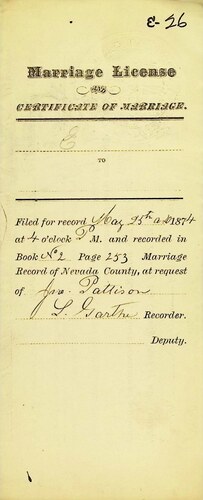 E-26
Marriage License
AND
CERTIFICATE OF MARRIAGE.
E
TO
Filed for record May 25th a.d. 1874
at 4 o'clock P M. and recorded in
Book No 2 Page 253 Marriage
Record of Nevada County, at request
of Jno. Pattison
L. Garthe Recorder.
Deputy.